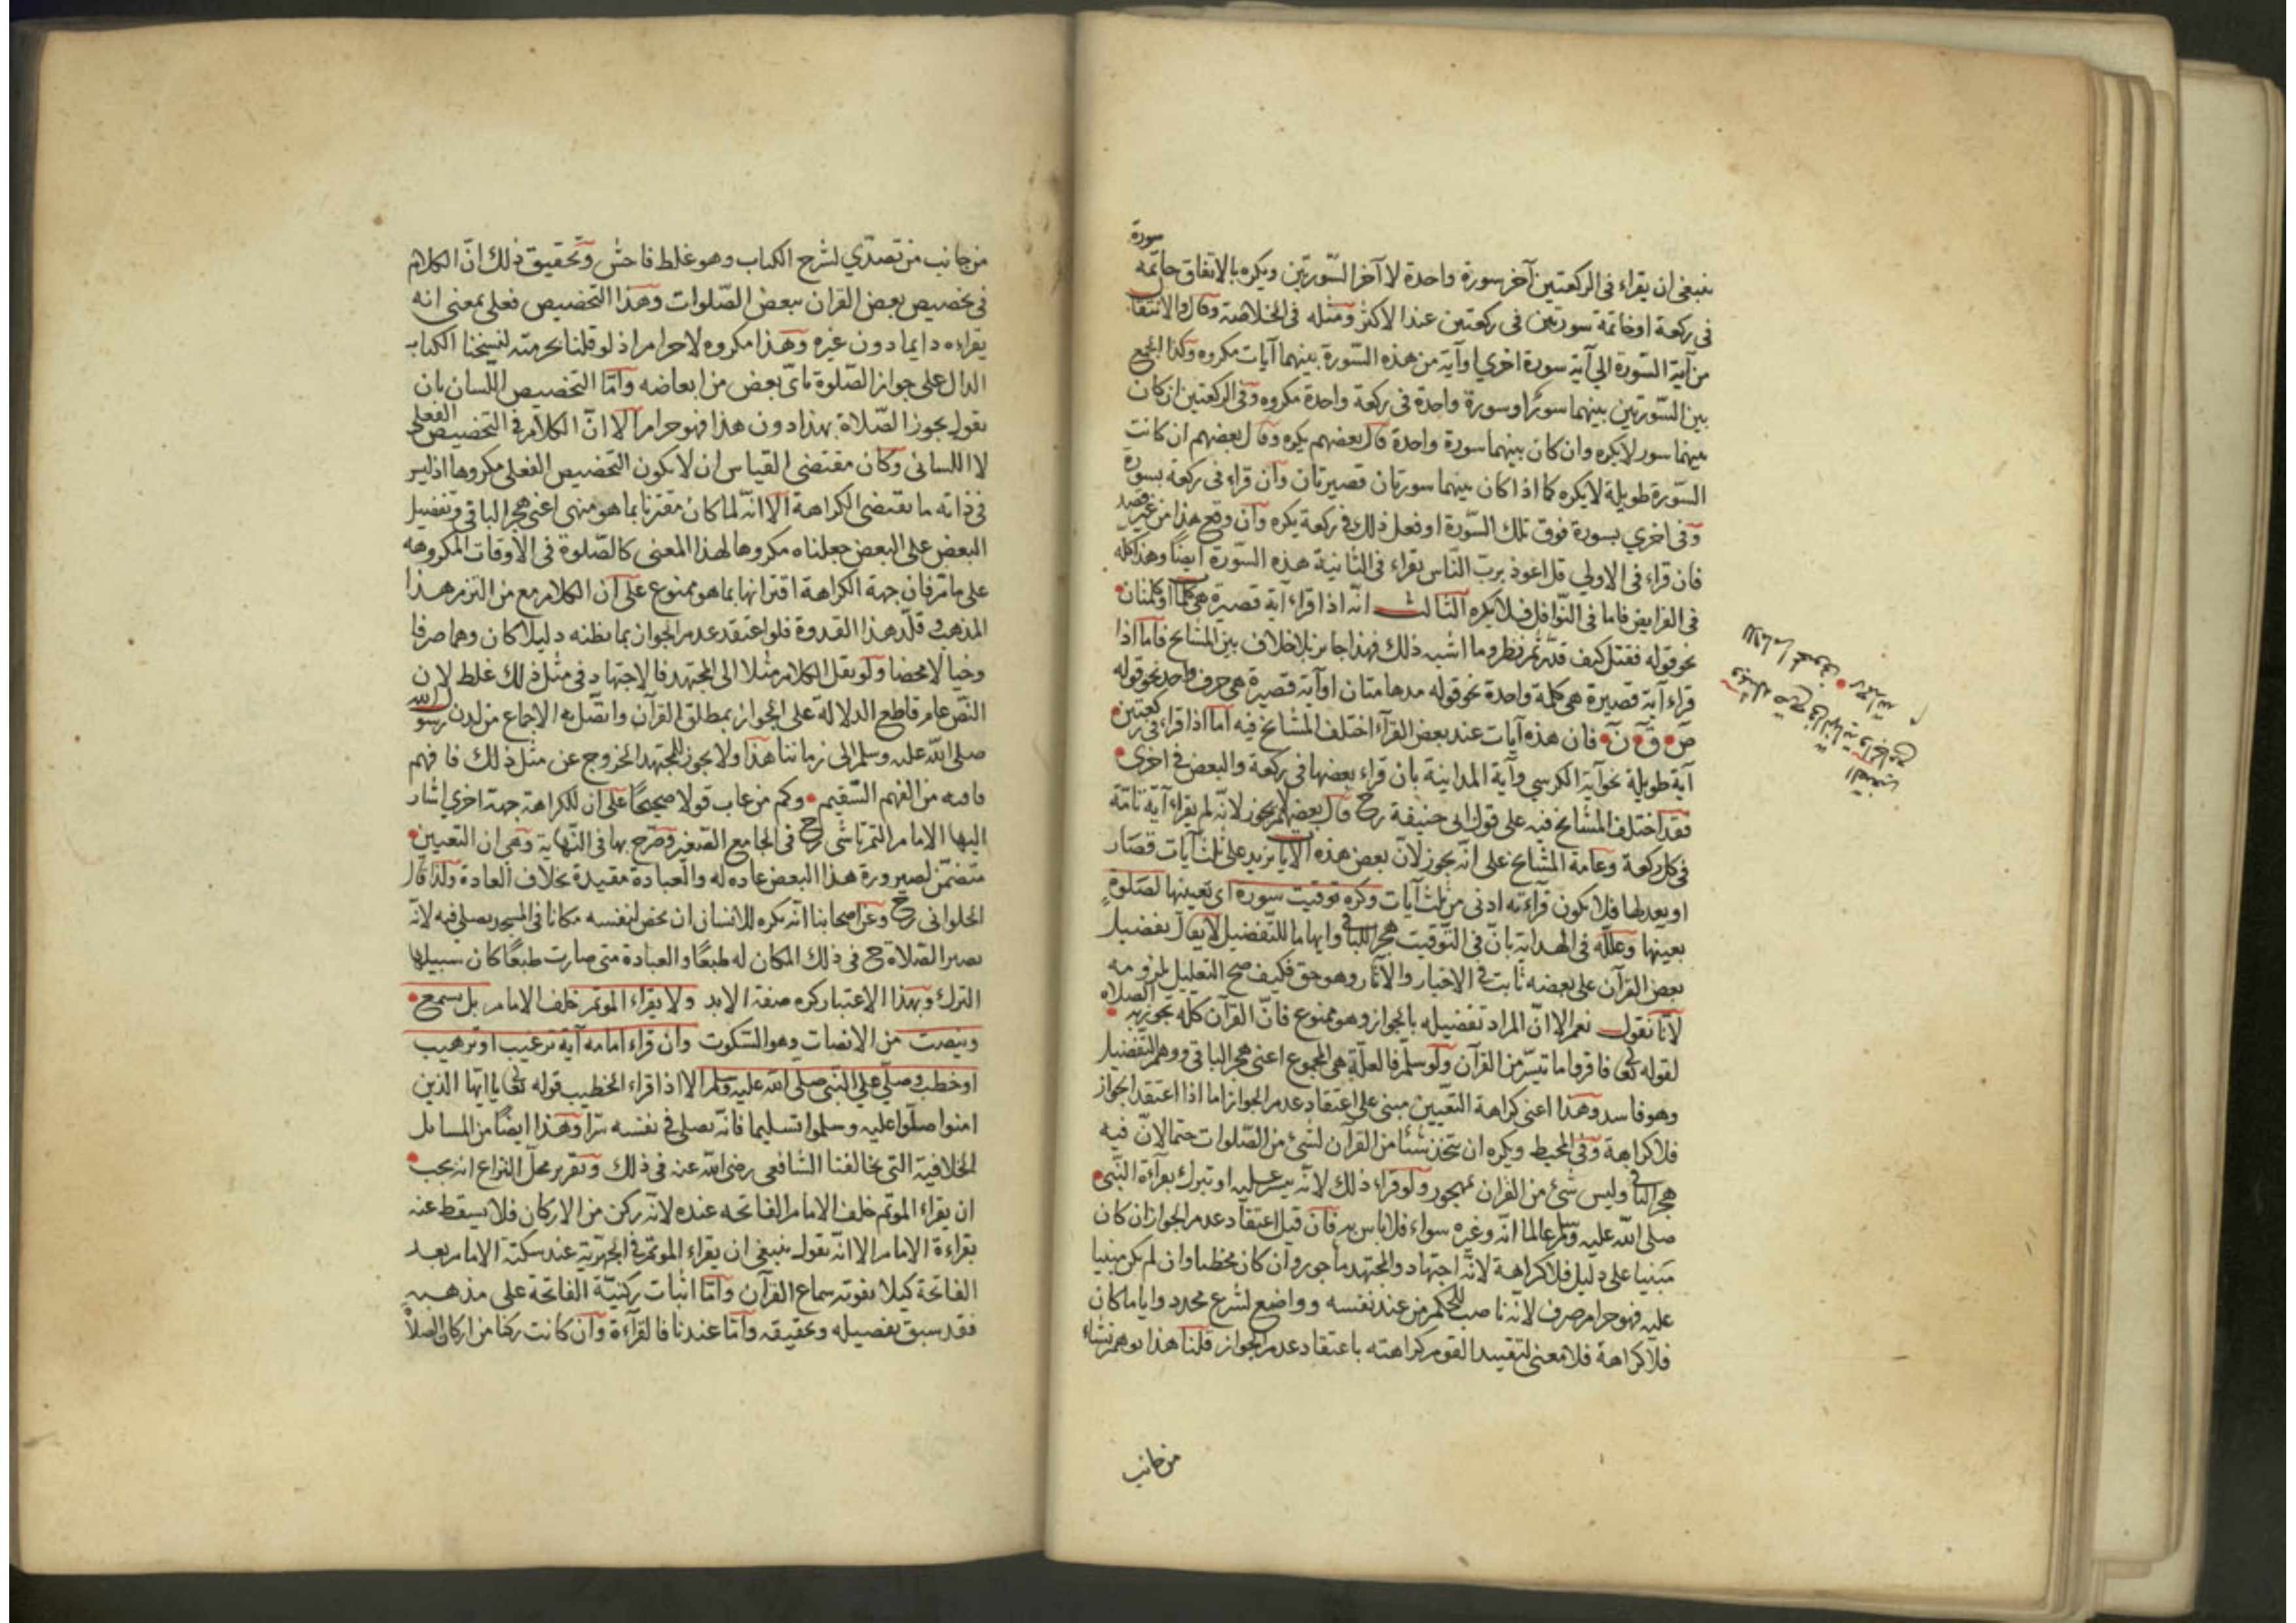 ينبغي ان يقراء فى الركعتين آخر سورة واحدة لا آخر السّورتين ويكره بالاتفاق خاتمة سورة
فى ركعة او خاتمة سورتين فى ركعتين عند الاكثر ومثله فى الخلاصة وقال والانتقال
من آية السّورة الي آية سورة اخري او آية من هذه السّورة بينهما آيات مكروه وكذا الجمع
بين السّورتين بينهما سورٌ او سورة واحدة فى ركعة واحدة مكروه وفى الركعتين ان كان
بينهما سور لا يكره وان كان بينهما سورة واحدة قال بعضهم يكره وقال بعضهم ان كانت
السّورة طويلة لا يكره كما اذا كان بينهما سورتان قصيرتان وان قراء فى ركعة بسورة
وفى اخري بسورة فوق تلك السّورة او فعل ذلك فى ركعة يكره وان وقع هذا من غير قصد
فان قراء فى الاولي قل اعوذ بربّ النّاس يقراء فى الثانية هذه السّورة ايضاً وهذا كله
فى الفرايض فاما فى النّوافل فلا يكره الثالث انّه اذا قراء آية قصيرة هى كلمات او كلمتان
نحو قوله فقتل كيف قدّر ثم نظر وما اشبه ذلك فهذا جايز بلا خلاف بين المشايخ فاما اذا
قراء آية قصيرة هى كلمة واحدة نحو قوله مدهامتان او آية قصيرة هى حرف واحد نحو قوله
ص ق ن فان هذه آيات عند بعض القرّاء اختلف المشايخ فيه اما اذا قراء فى ركعتين
آية طويلة نحو آية الكرسي وآية المداينة بان قراء بعضها فى ركعة والبعض فى اخرى
فقد اختلف المشايخ فيه على قول ابى حنيفة رح قال بعضهم لم يجوز لانّه لم يقراء آية تامّة
فى كل ركعة وعامة المشايخ على انّه يجوز لانّ بعض هذه الآيا يزيد على ثلث آيات قصار
او يعدلها فلا يكون قرآءته ادنى من ثلث آيات وكره توقيت سورة اى تعيينها لصلوةٍ
بعينها وعلّله فى الهداية بانّ فى التّوقيت هجر للباقى وايهاما للتّفضيل لا يقال تفضيل
بعض القرآن على بعضه ثابت فى الاخبار والآثار وهو حق فكيف صح التعليل بلزومه
لانّا نقول نعم الا انّ المراد تفضيله بالجواز وهو ممنوع فانّ القرآن كلّه يجوز به الصلاة
لقوله تعالى فاقرؤا ما تيسّر من القرآن ولو سلّم فالعلّة هى المجموع اعنى هجر الباقى ووهم التّفضيل
وهو فاسد وهذا اعنى كراهة التّعيين مبنى على اعتقاد عدم الجواز اما اذا اعتقد الجواز
فلا كراهة وفى المحيط ويكره ان يتخذ شيئا من القرآن لشئ من الصّلوات حتما لانّ فيه
هجر الباقى وليس شئ من القرآن بمهجور ولو قراء ذلك لانّه يسير عليه او تبرك بقرآءة النّبى
صلى الله عليه وسلم عالما انّه وغيره سواء فلا باس به فان قيل اعتقاد عدم الجواز ان كان
مبنيا على دليل فلا كراهة لانّه اجتهاد والمجتهد ماجور وان كان مخطيا وان لم يكن مبنيا
عليه فهو حرام صرف لانّه ناصب للحكم من عند نفسه وواضع لشرع مجدد واياما كان
فلا كراهة فلا معنى لتقييد القوم كراهته باعتقاد عدم الجواز قلنا هذا توهم نشاء
من جانب
من جانب من تصدّي لشرح الكتاب وهو غلط فاحش وتحقيق ذلك انّ الكلام
فى تخصيص بعض القرآن ببعض الصّلوات وهذا التخصيص فعلى بمعنى انه
يقراءه دايما دون غيره وهذا مكروه لا حرام اذ لو قلنا بحرمته لنسخنا الكتاب
الدال على جواز الصّلوة باىّ بعض من ابعاضه وامّا التخصيص اللّسان بان
يقول يجوز الصّلاة بهذا دون هذا فهو حرام الا انّ الكلام فى التخصيص الفعلى
لا اللسانى وكان مقتضى القياس ان لا يكون التخصيص الفعلى مكروها اذ ليس
فى ذاته ما يقتضى الكراهة الا انّه لما كان مقترنا بما هو منهى اعنى هجر الباقى وتفضيل
البعض على البعض جعلناه مكروها لهذا المعنى كالصّلوة فى الاوقات المكروهه
على ما مر فان جهة الكراهة اقترانها بما هو ممنوع على ان الكلام مع من التزم هذا
المذهب وقلّد هذا القدوة فلو اعتقد عدم الجواز بما يظنه دليلا كان وهما صرفا
وخيالا محضا ولو نقل الكلام مثلا الى المجتهد فالاجتهاد فى مثل ذلك غلط لان
النّص عام قاطع الدلالة على الجواز بمطلق القرآن واتّصل به الاجماع من لدن رسول الله
صلى الله عليه وسلم الى زماننا هذا ولا يجوز للمجتهد الخروج عن مثل ذلك فافهم
من الفهم السّقيم وكم من عاب قولا صحيحًا على ان للكراهة جهة اخري اشار
اليها الامام التمرتاشى رح فى الجامع الصّغير وصّرح بها فى النّهاية وهى ان التعيين
متضمّن لصيرورة هذا البعض عاده له والعبادة مقيدة بخلاف العادة ولذا قال
الحلوانى رح وعن اصحابنا انّه يكره للانسانى ان يخص لنفسه مكانا فى المسجد يصلى فيه لانّه
تصير الصّلاة ح فى ذلك المكان له طبعًا والعبادة متى صارت طبعًا كان سبيلها
الترك وبهذا الاعتبار كره صفة الابد ولا يقراء الموتم خلف الامام بل يسمع
وينصت من الانصات وهو السّكوت وان قراء امامه آية ترغيب او ترهيب
او خطب وصلّي علي النّبى صلى الله عليه وسلم الا اذا قراء الخطيب قوله تعالى يا ايّها الذين
امنوا صلّوا عليه وسلموا تسليما فانّه يصلى فى نفسه سرّا وهذا ايضًا من المسايل
الخلافية التى يخالفنا الشافعى رضى الله عنه فى ذلك وتقرير محلّ النزاع انه يجب
ان يقراء الموتم خلف الامام الفاتحه عنده لانّه ركن من الاركان فلا يسقط عنه
بقراءة الامام الا انّه يقول ينبغى ان يقراء الموتم فى الجهريّة عند سكتة الامام بعد
الفاتحة كيلا يفوته سماع القرآن وامّا اثبات ركنيّة الفاتحة على مذهبه
فقد سبق تفصيله وتحقيقه وامّا عندنا فالقرآءة وان كانت ركنا من اركان الصلاة